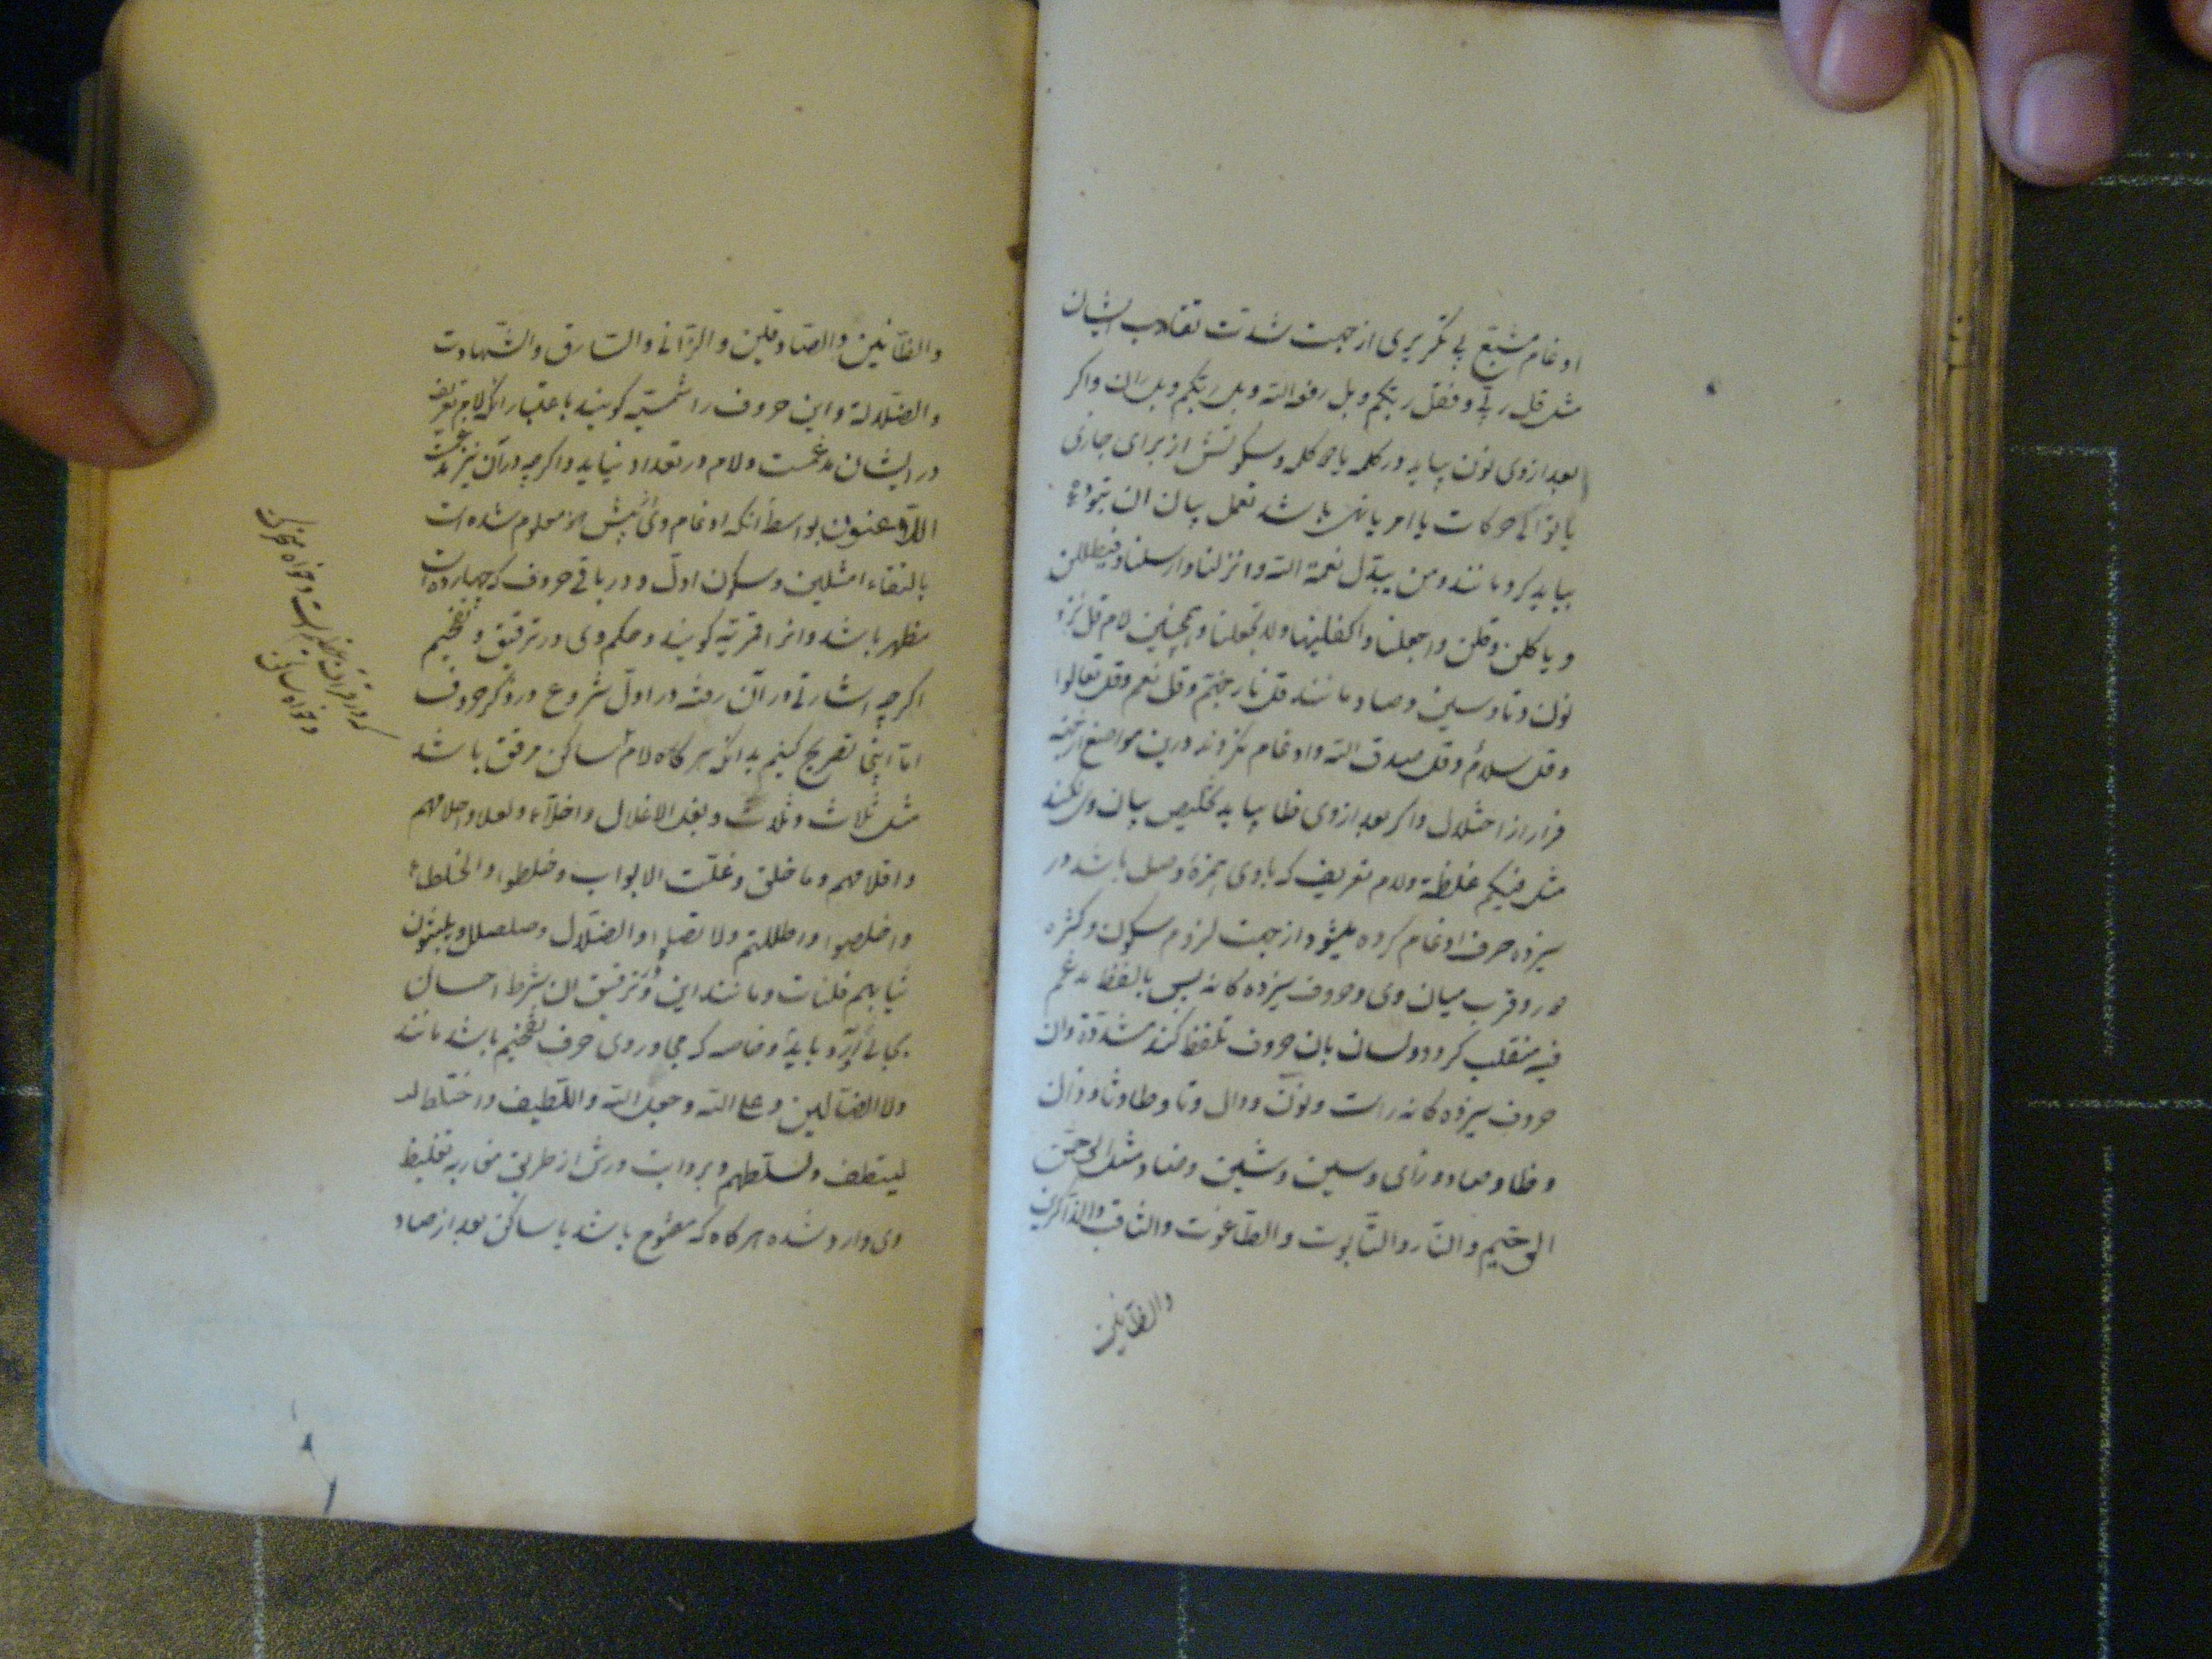 ادغام مشبع بی تکریری از جهت شدت تقارب ایشان
مثل قل ربی و فقل ربکم و بل رفعه الله و بل ربکم و بل ران و اکر
بعد ازوی نون بیاید در کلمه یا دو کلمه و سکونش از برای جازی
یا توالی حرکات یا امر یا نهی باشد تعمل بیان ان
بباید کرد مانند ومن یبدل نعمة الله و انزلنا و ارسلنا و فیظللن
و یاکلن و قلن و اجعلنا و اکفلنیها ولا تجعلنا و همچنین لام قل نزد
نون و تا و سین و صاد مانند قل نار جهنم و قل نعم و قل تعالوا
و قل سلام و قل صدق الله و ادغام نکردند درین مواضع
فرار از اختلال و اکر بعد ازوی ظا بیاید تخلیص بیان وی بکنند
مثل فیکم غلظة ولام تعریف که باوی همزهٔ وصل باشد در
سیزده حرف ادغام کرده میشود از جهت لزوم سکون و کثرة
دور و قرب میان وی و حروف سیزده کانه پس بالفظ مدغم
فیه منقلب کردد و لسان بان حروف تلفظ کند مشدّدة وان
حروف سیزده کانه راست و نون و دال و تا و طا و ثا و ذال
و ظا و صاد و زای و سین و شین و ضاد مثل الرحمن
الرحیم و النار و التابوت و الطاغوت و الثاقب و الذاکرین
والظانین
والظانین والصادقین والزانی والسارق والشهادت
والضلالة و این حروف را شمسیّه کویند باعتبار انکه لام تعریف
در ایشان مدغمست ولام در تعداد نیاید و اکرچه در آن نیز مدغمست
اللاعنون بواسطهٔ انکه ادغام وی پیش از معلوم شده است
بالتقاء مثلین و سکون اول و در باقی حروف که چهارده است
مظهر باشد و انرا قمریه کویند و حکم وی در ترقیق و تفخیم
اکرچه اشارتی در آن رفته در اول شروع در ذکر حروف
اما اینجا تصریح کنیم بدانکه هرکاه لام ساکن مرقق باشد
مثل ثلاث و ثلاث و یغل الاغلال و اخلاء و لعلا و احلامهم
و اقلامهم و ما خلق و غلقت الابواب و خلطوا و الخلطاء
و اخلصوا و اظللتم ولا تصل و الضلال و صلصال و یلبثون
ثیابهم فلذات و مانند این و ترقیق ان بشرط احسان
بجای آید و باید و خاصه که مجاور وی حرف تفخیم باشد مانند
ولا الضالین و علی الله و جعل الله و اللطیف و اختلط
لیتلطف و لسلطهم و بروایت ورش از طریق مغاربه تغلیظ
وی وارد شده هرکاه که مفتوح باشد یا ساکن بعد از صاد
و خواه ساکن